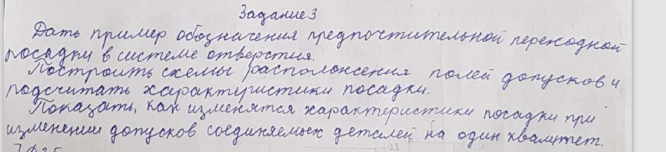 Задание 3
Дать пример обозначения предпочтительной переходной
посадки в системе отверстия.
Построить схемы расположения полей допусков и
подсчитать характеристики посадки.
Показать, как изменятся характеристики посадки при
изменении допусков соединяемых деталей на один квалитет.